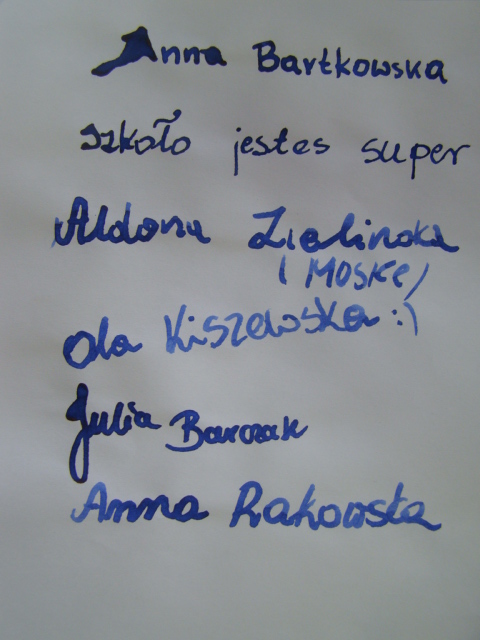 Anna Bartkowska
szkoło jestes super
Aldona Zielinska
(Moske)
Ola Kiszewska :)
Julia Barczak
Anna Rakowska